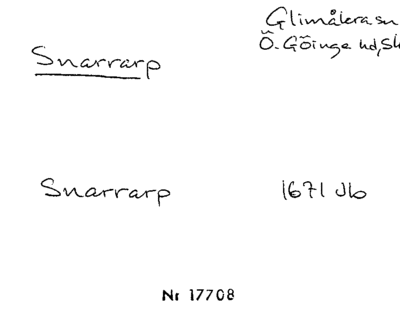 Glimåkra sn
Snarrarp
Ö. Göinge hd, Sk
Snarrarp 1671 Jb
Nr 17708